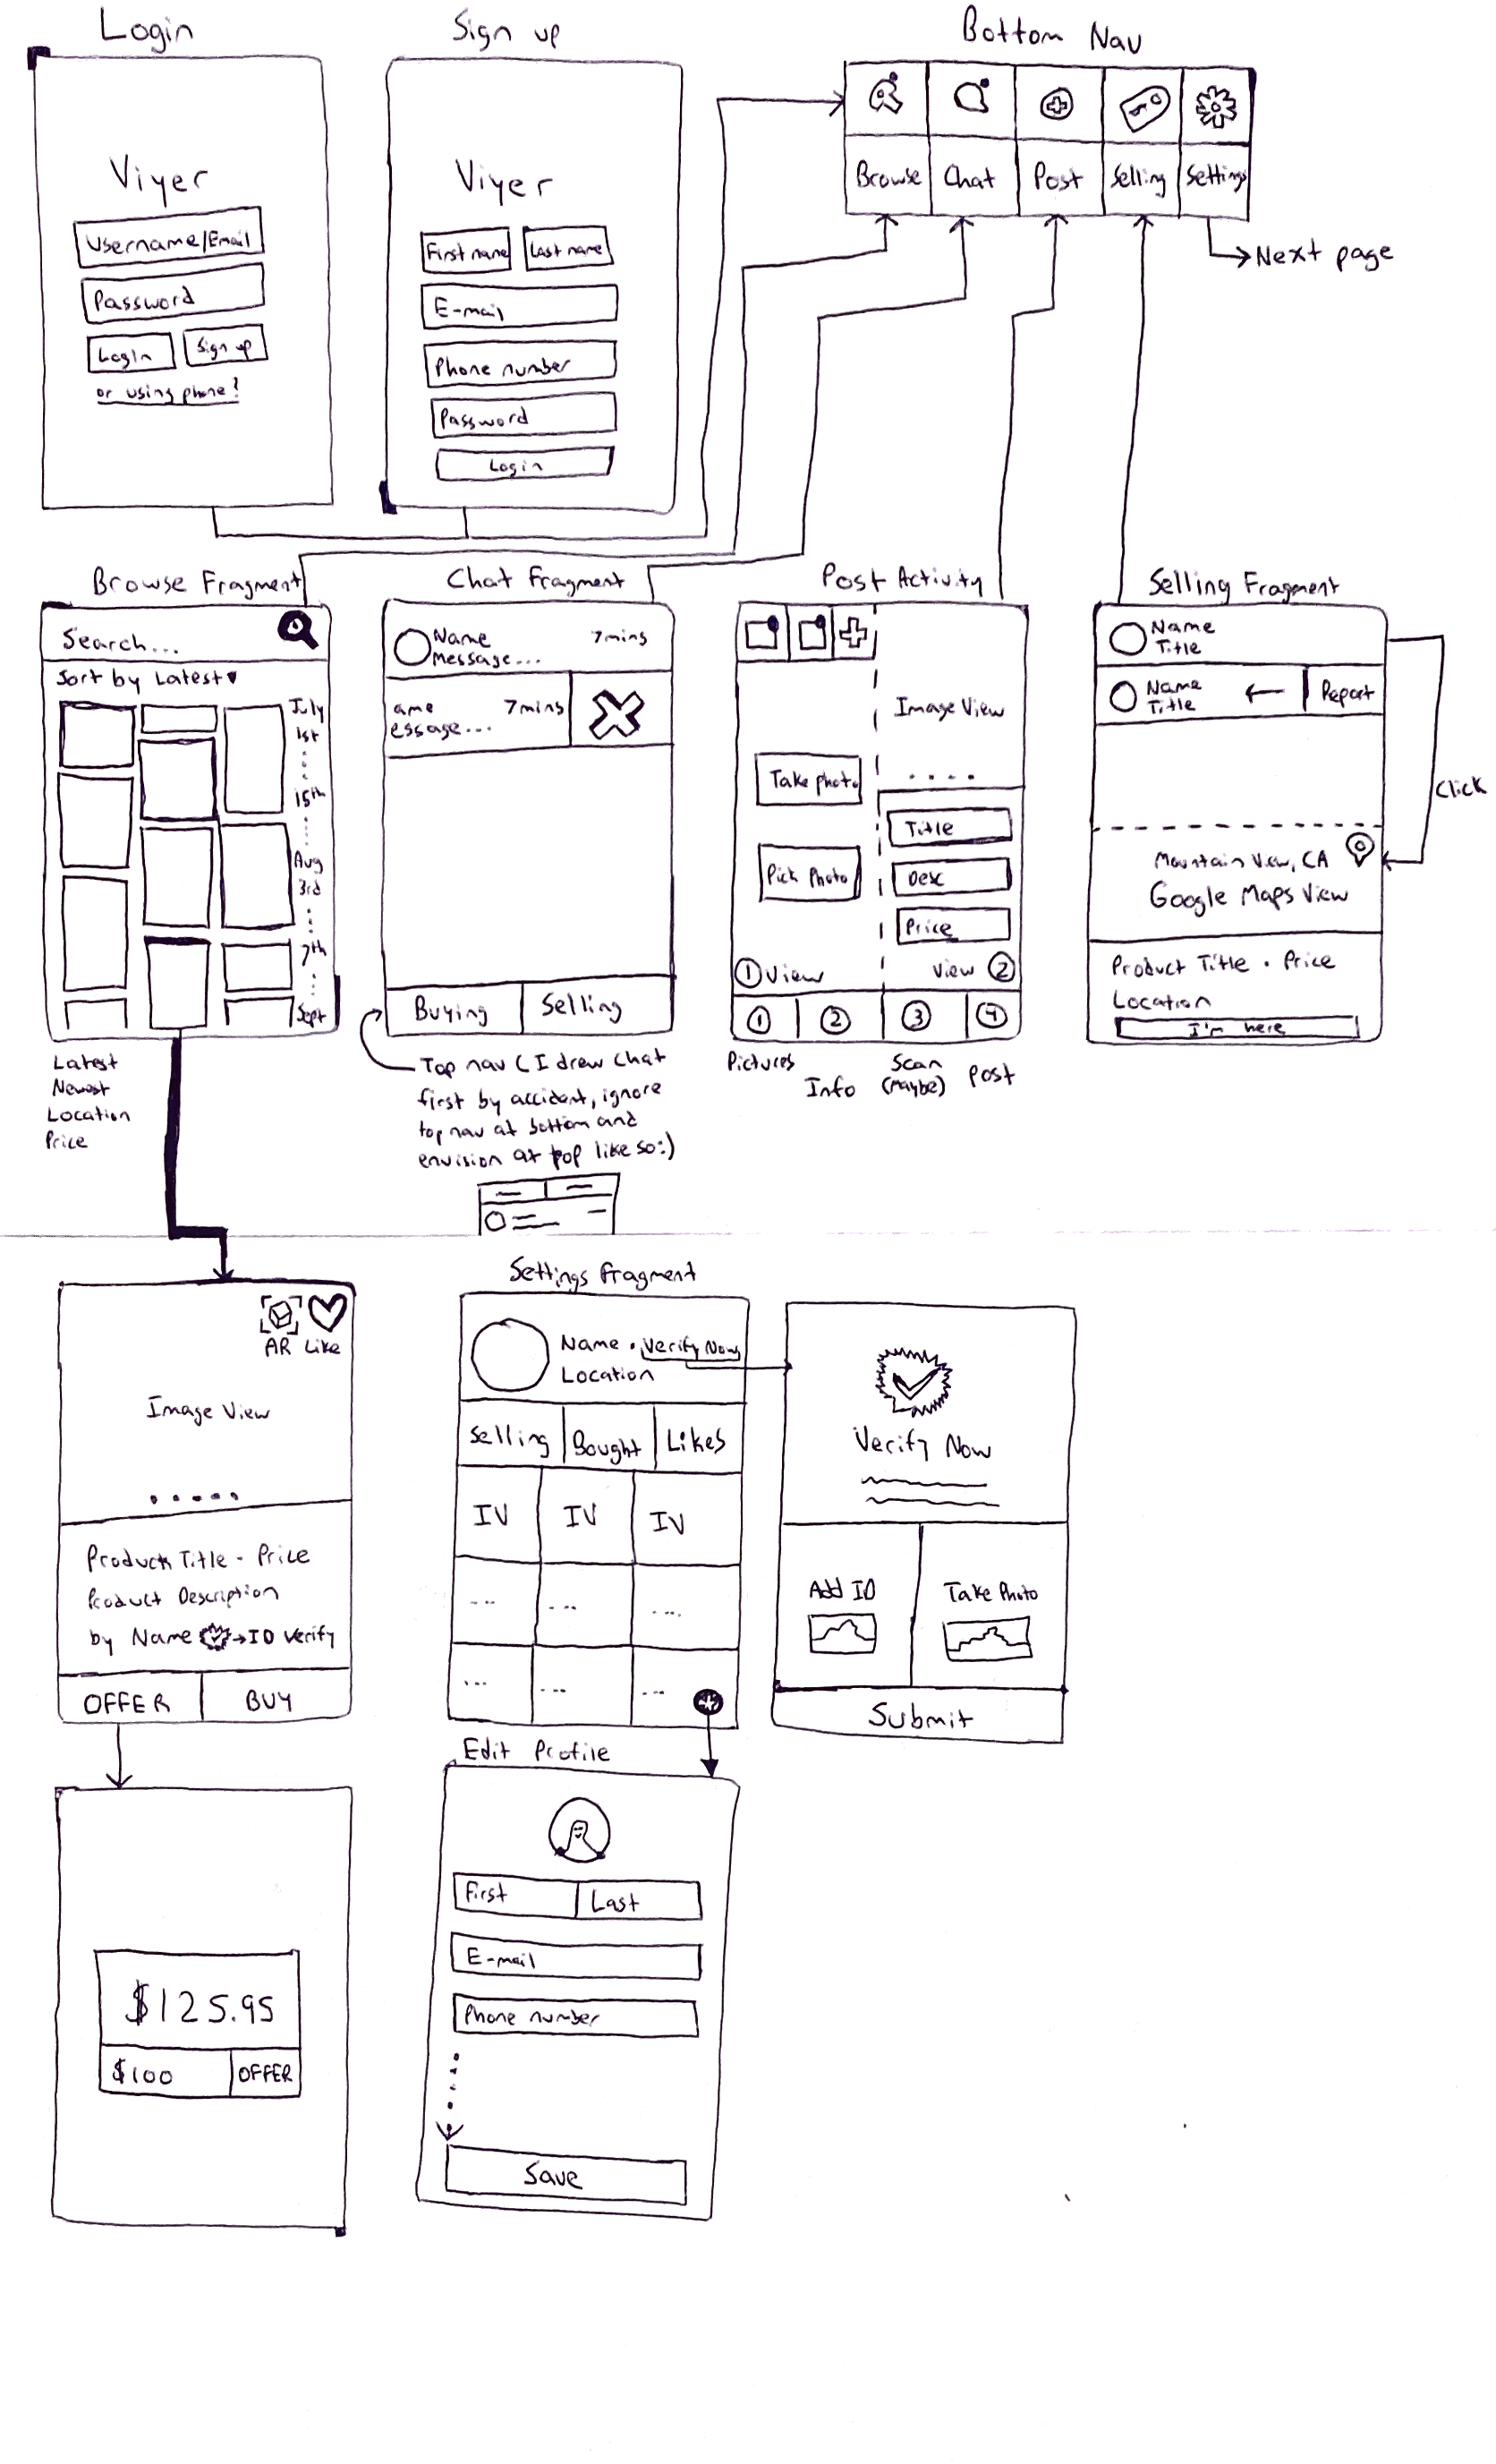 Login
Viyer
Username/Email
Password
Login
Sign up
or using phone?
Sign up
Viyer
First name
Last name
E-mail
Phone number
Password
Login
Bottom Nav
Browse
Chat
Post
Selling
Settings
Next page
Browse Fragment
Search...
Sort by Latest
July
1st
15th
Aug
3rd
7th
Sept
Latest
Newest
Location
Price
Chat Fragment
Name
7mins
Message...
ame
7mins
essage...
Buying
Selling
Top nav (I drew chat
first by accident, ignore
top nav at bottom and
envision at top like so:)
Post Activity
Image View
Take photo
Pick Photo
Title
Desc
Price
1 View
View 2
1
2
3
4
Pictures
Info
Scan
(maybe)
Post
Selling Fragment
Name
Title
Name
Title
Report
Click
Mountain View, CA
Google Maps View
Product Title . Price
Location
I'm here
AR Like
Image View
Product Title - Price
Product Description
by Name → ID Verify
OFFER
BUY
$125.95
$100
OFFER
Settings Fragment
Name . Verify Now
Location
Selling
Bought
Likes
IV
IV
IV
Verify Now
Add ID
Take Photo
Submit
Edit Profile
First
Last
E-mail
Phone number
Save